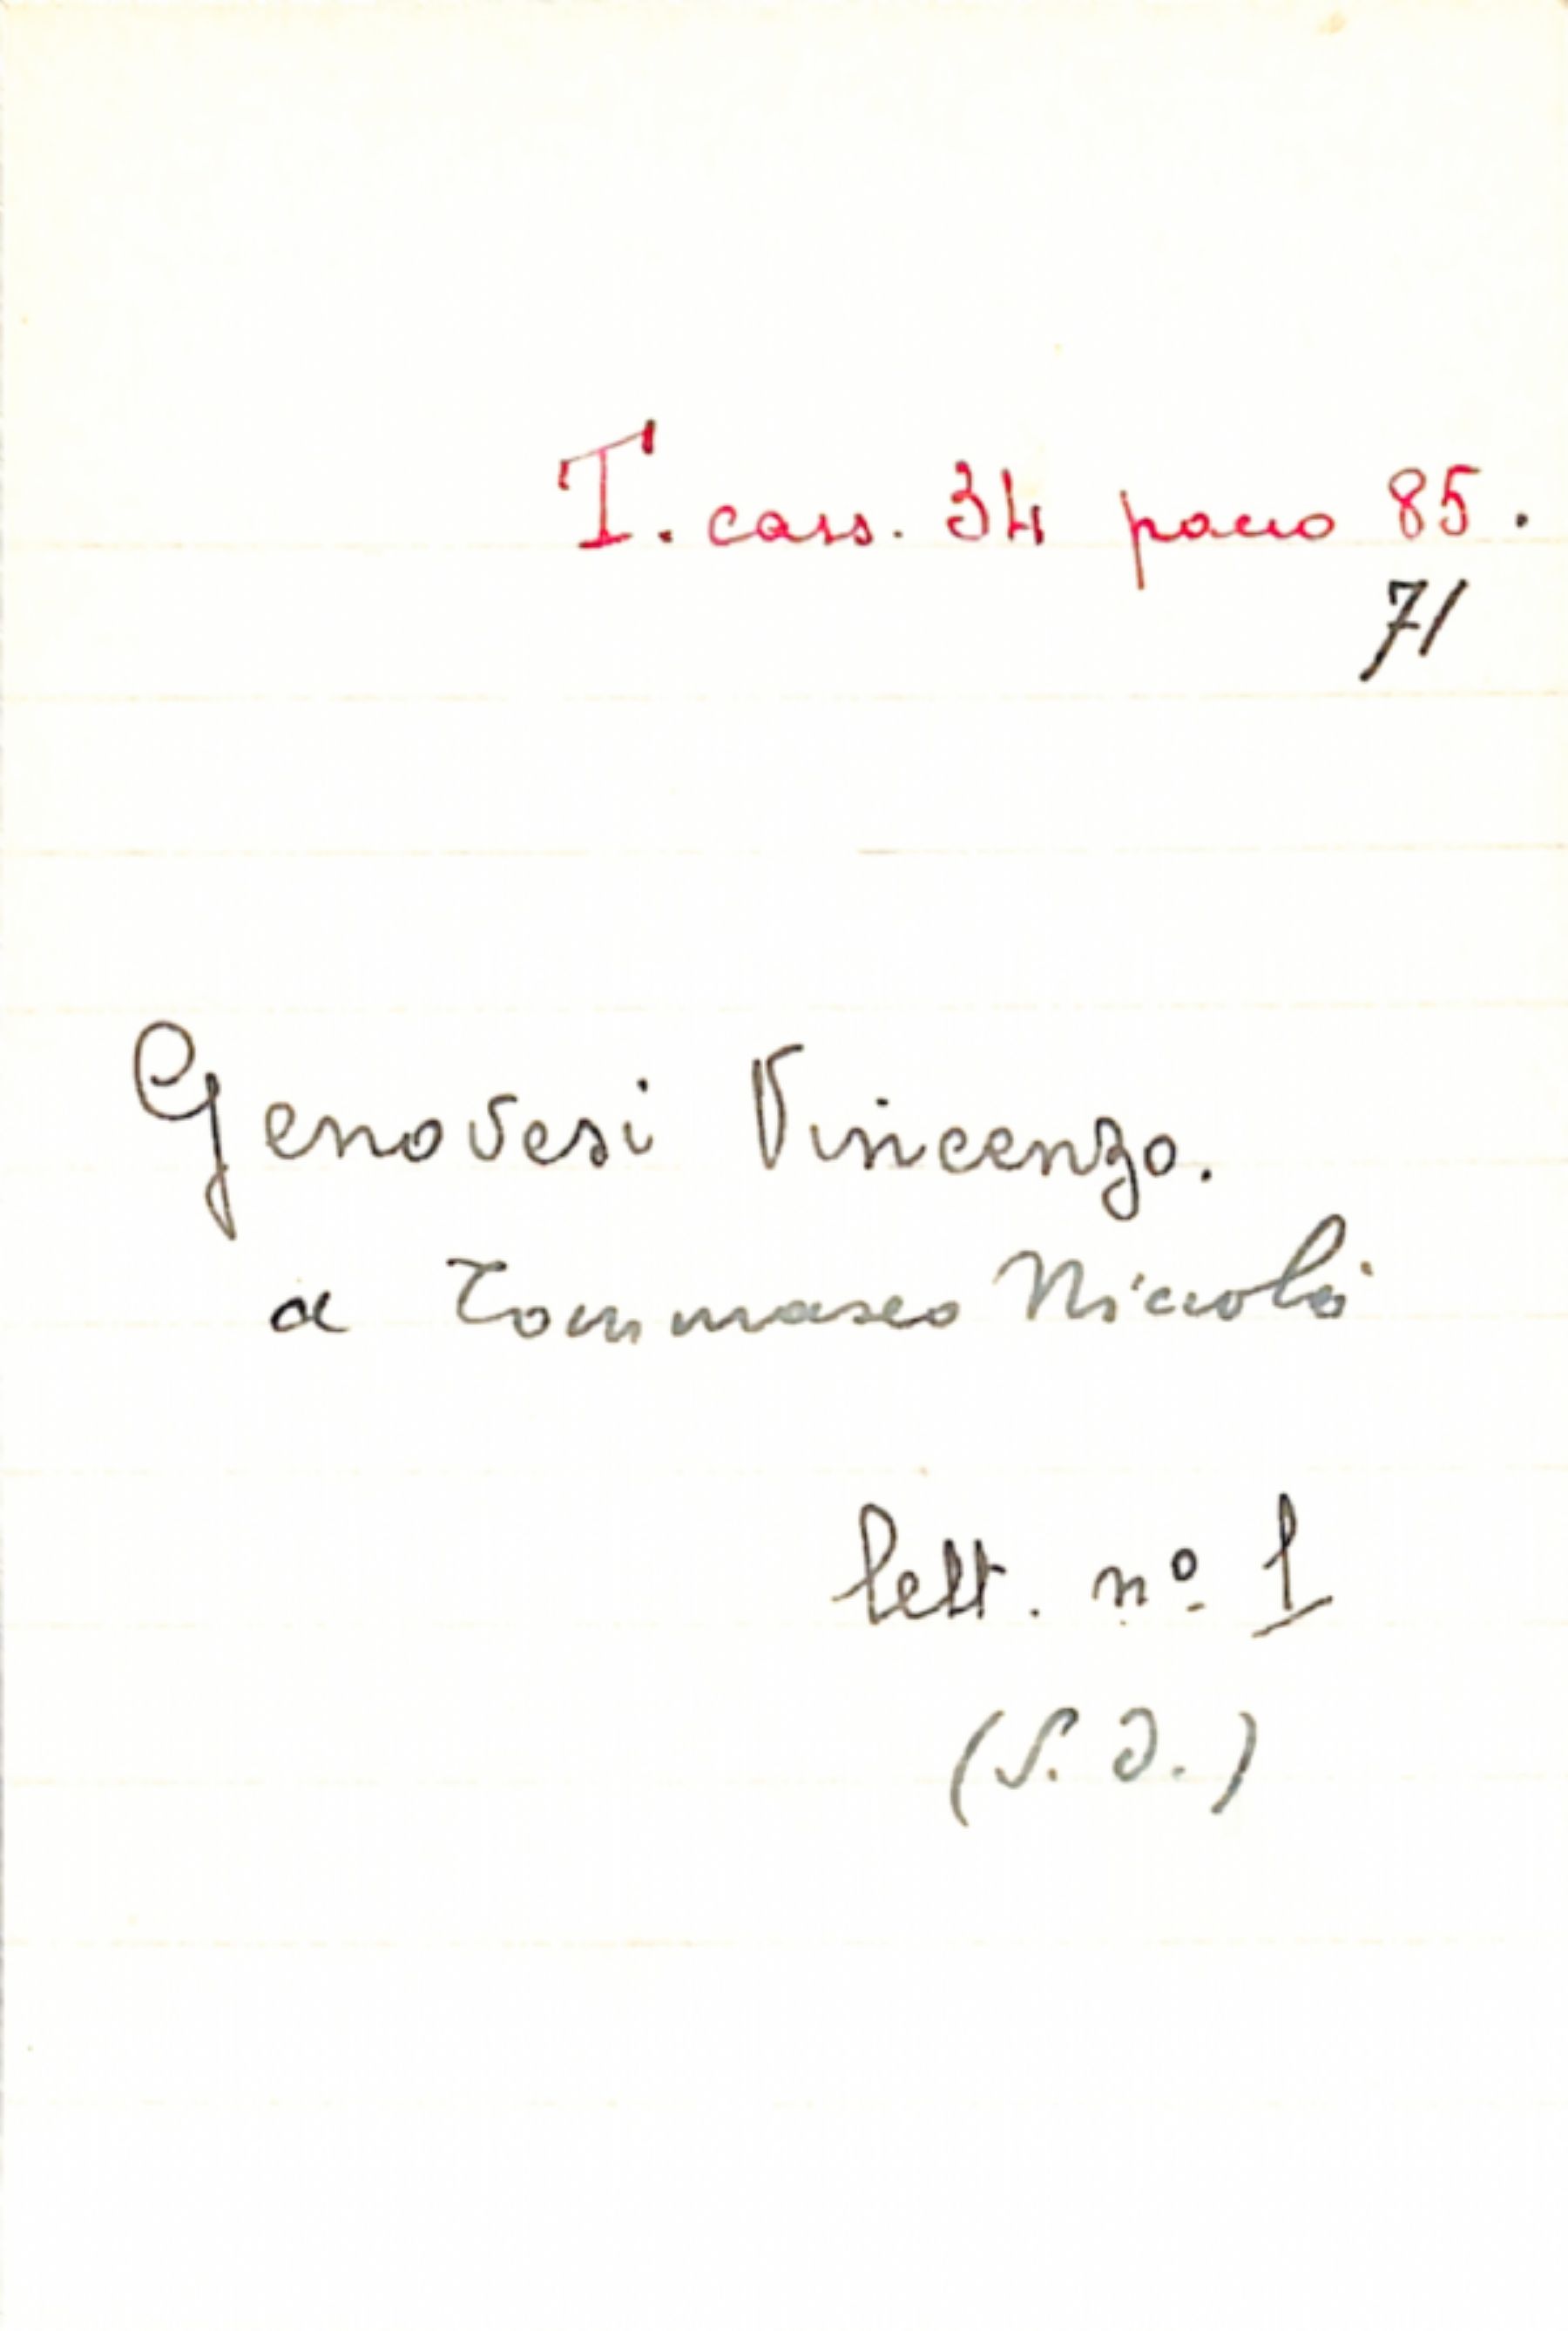 T. cass. 34 pacco 85.
71
Genovesi Vincenzo.
a Tommaseo Niccolò
lett. nº 1
(S. d.)